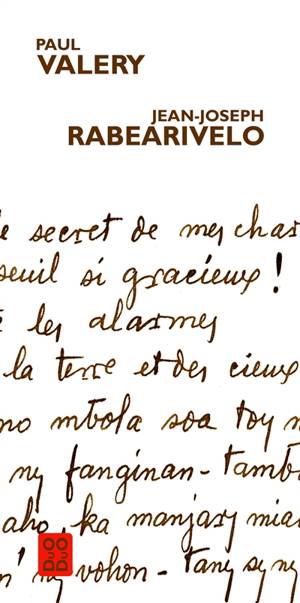 PAUL
VALERY
JEAN-JOSEPH
RABEARIVELO
e secret de mes char
seuil si gracieux !
les alarmes
la terre et des cieux
no mbola soa toy n
ny fanginan - tamb
aho, ka manjary mia
n' ny vohon - tany sy ny
DUO
DUO